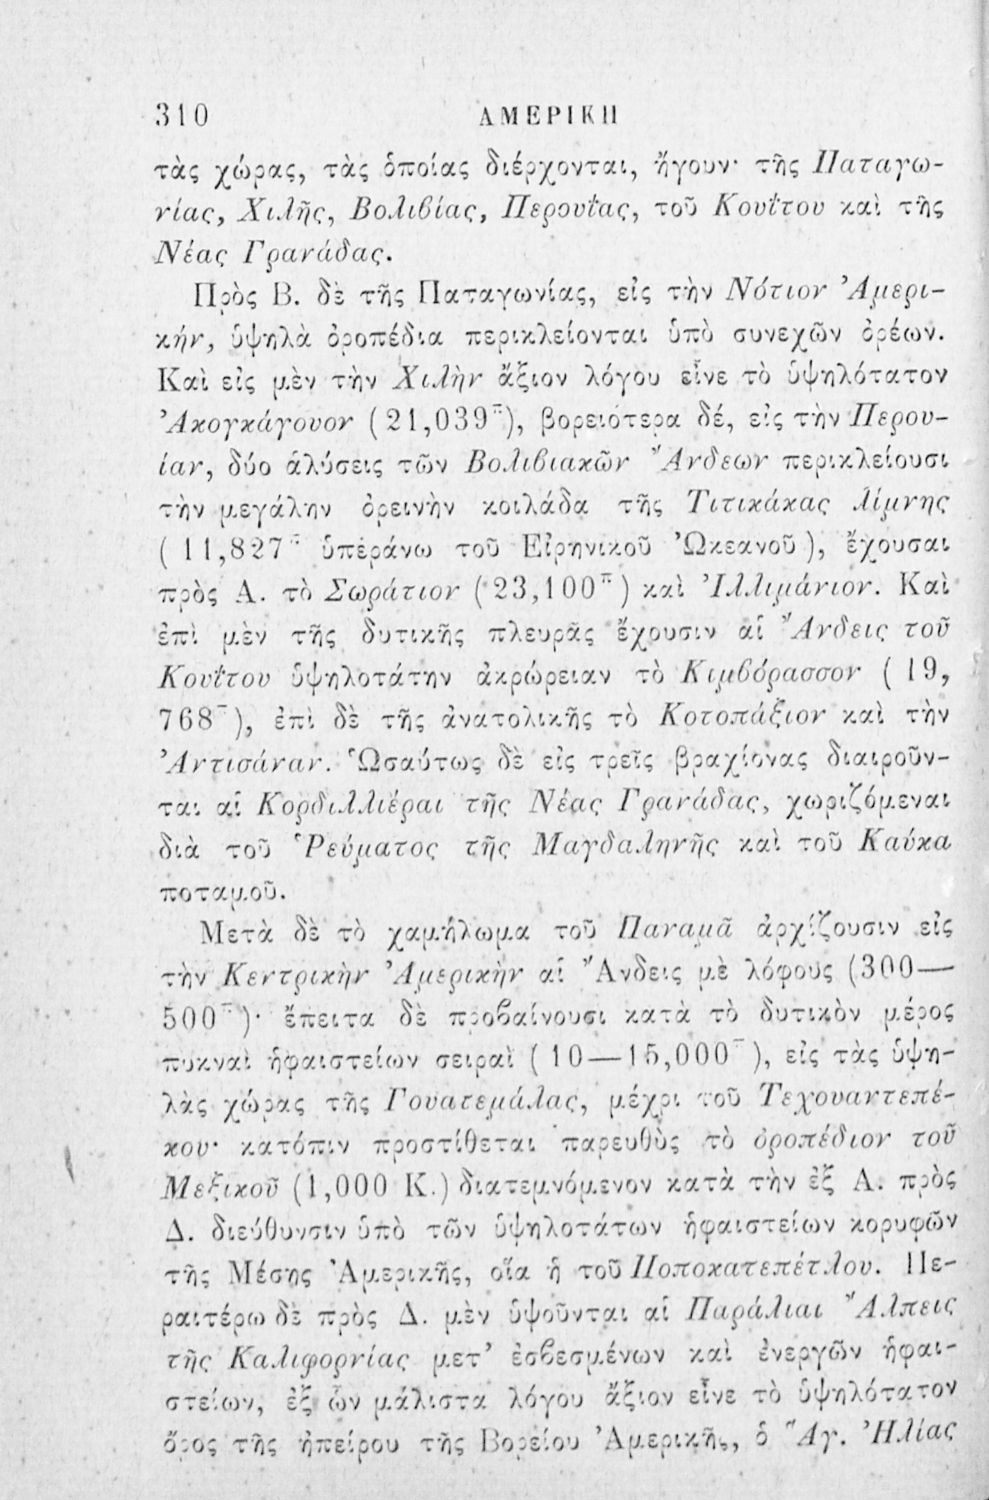 310 ΑΜΕΡΙΚΗ
τὰς χώρας, τὰς ὁποίας διέρχονται, ἤγουν· τῆς Παταγω-
νίας, Χιλῆς, Βολιβίας, Περουΐας, τοῦ Κουΐτου καὶ τῆς
Νέας Γρανάδας.
Πρὸς Β. δὲ τῆς Παταγωνίας, εἰς τὴν Νότιον Ἀμερι-
κήν, ὑψηλὰ ὀροπέδια περικλείονται ὑπὸ συνεχῶν ὀρέων.
Καὶ εἰς μὲν τὴν Χιλὴν ἄξιον λόγου εἶνε τὸ ὑψηλότατον
Ἀκογκάγουον (21,039π), βορειότερα δέ, εἰς τὴν Περου-
ίαν, δύο ἁλύσεις τῶν Βολιβιακῶν Ἄνδεων περικλείουσι
τὴν μεγάλην ὀρεινὴν κοιλάδα τῆς Τιτικάκας λίμνης
(11,827π ὑπεράνω τοῦ Εἰρηνικοῦ Ὠκεανοῦ), ἔχουσαι
πρὸς Α. τὸ Σωράτιον (23,100π) καὶ Ἰλλιμάνιον. Καὶ
ἐπὶ μὲν τῆς δυτικῆς πλευρᾶς ἔχουσιν αἱ Ἄνδεις τοῦ
Κουΐτου ὑψηλοτάτην ἀκρώρειαν τὸ Κιμβόρασσον (19,
768π), ἐπὶ δὲ τῆς ἀνατολικῆς τὸ Κοτοπάξιον καὶ τὴν
Ἀντισάναν. Ὡσαύτως δὲ εἰς τρεῖς βραχίονας διαιροῦν-
ται αἱ Κορδιλλιέραι τῆς Νέας Γρανάδας, χωριζόμεναι
διὰ τοῦ Ῥεύματος τῆς Μαγδαληνῆς καὶ τοῦ Καύκα
ποταμοῦ.
Μετὰ δὲ τὸ χαμήλωμα τοῦ Παναμᾶ ἀρχίζουσιν εἰς
τὴν Κεντρικὴν Ἀμερικὴν αἱ Ἄνδεις μὲ λόφους (300—
500π)· ἔπειτα δὲ προβαίνουσι κατὰ τὸ δυτικὸν μέρος
πυκναὶ ἡφαιστείων σειραὶ (10—15,000π), εἰς τὰς ὑψη-
λὰς χώρας τῆς Γουατεμάλας, μέχρι τοῦ Τεχουαντεπέ-
κου· κατόπιν προστίθεται παρευθὺς τὸ ὀροπέδιον τοῦ
Μεξικοῦ (1,000 Κ.) διατεμνόμενον κατὰ τὴν ἐξ Α. πρὸς
Δ. διεύθυνσιν ὑπὸ τῶν ὑψηλοτάτων ἡφαιστείων κορυφῶν
τῆς Μέσης Ἀμερικῆς, οἵα ἡ τοῦ Ποποκατεπέτλου. Πε-
ραιτέρω δὲ πρὸς Δ. μὲν ὑψοῦνται αἱ Παράλιαι Ἄλπεις
τῆς Καλιφορνίας μετ’ ἐσβεσμένων καὶ ἐνεργῶν ἡφαι-
στείων, ἐξ ὧν μάλιστα λόγου ἄξιον εἶνε τὸ ὑψηλότατον
ὄρος τῆς ἠπείρου τῆς Βορείου Ἀμερικῆς, ὁ Ἅγ. Ἠλίας